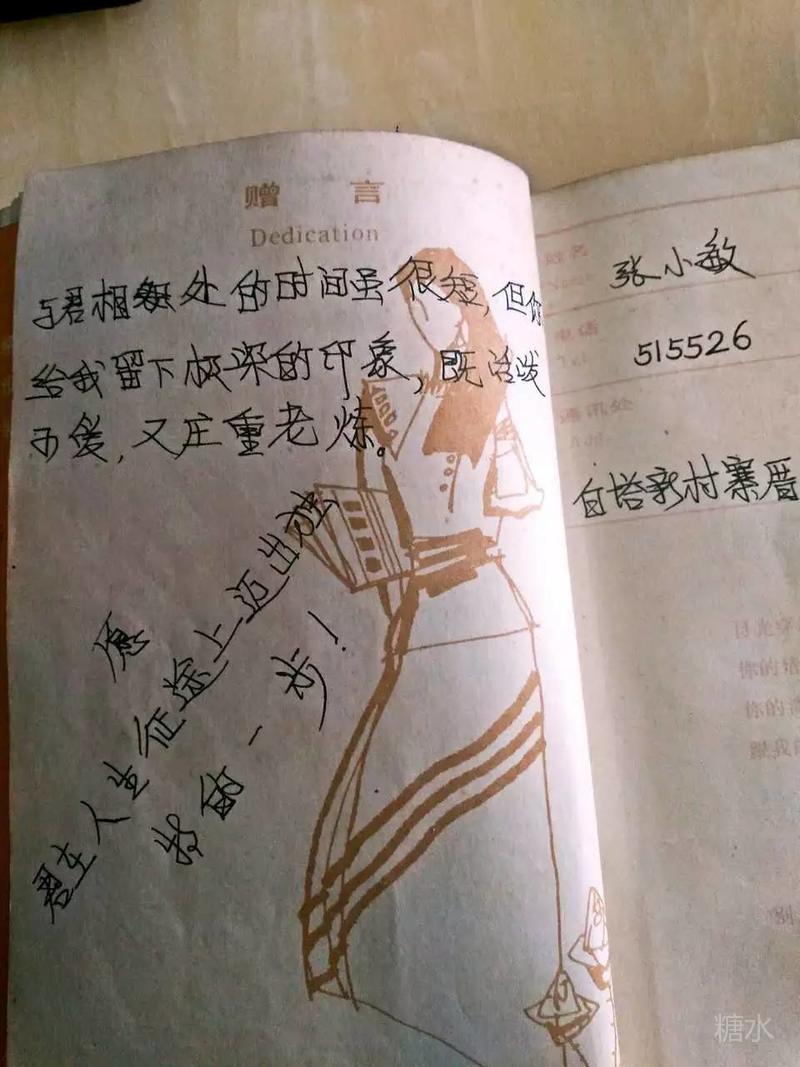 赠 言
Dedication
与君相处的时间虽很短,但你
给我留下极深的印象,既活泼
可爱,又庄重老炼。
愿
君在人生征途上迈出独
特的一步!
姓名
Name
张小敏
电话
Tel
515526
通讯处
Add
白塔新村寨厝
日光穿
你的
你的
跟我
别
糖水